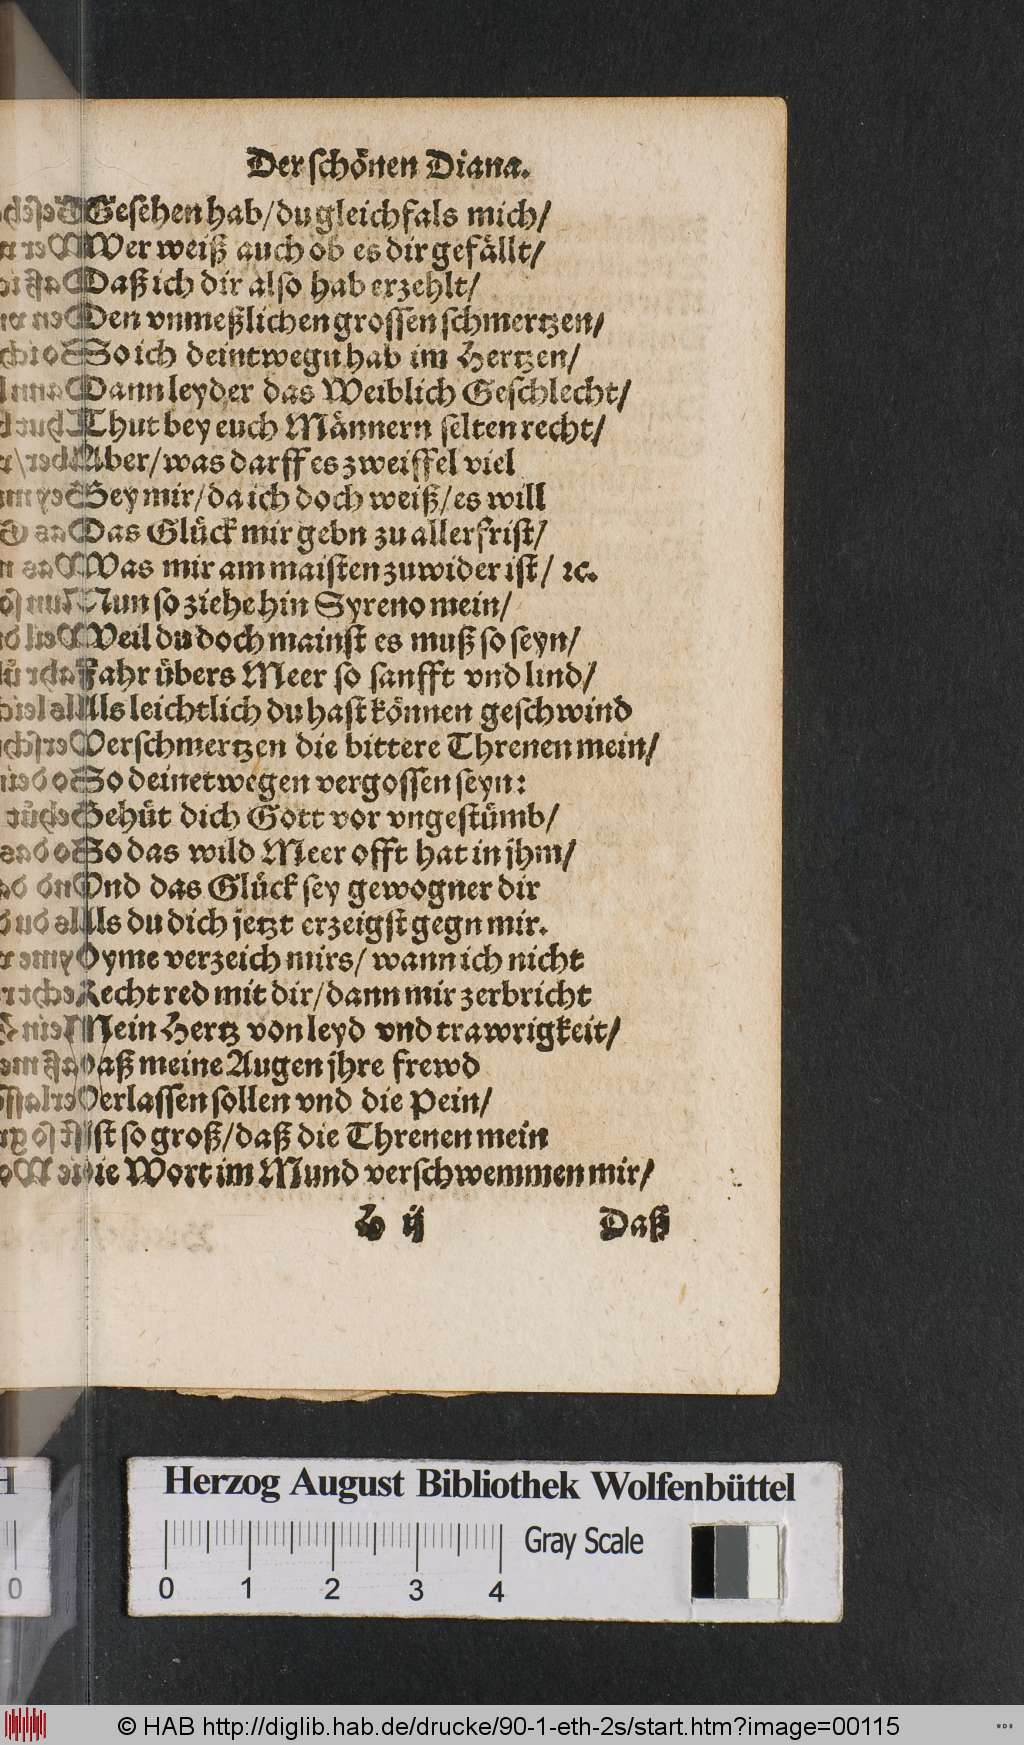 Der schönen Diana.
Gesehen hab/ du gleichfals mich/
Wer weiß auch ob es dir gefällt/
Daß ich dir also hab erzehlt/
Den vnmeßlichen grossen schmertzen/
So ich deintwegn hab im Hertzen/
Dann leyder das Weiblich Geschlecht/
Thut bey euch Männern selten recht/
Aber/ was darff es zweiffel viel
Bey mir/ da ich doch weiß/ es will
Das Glück mir gebn zu aller frist/
Was mir am maisten zuwider ist/ ꝛc.
Nun so ziehe hin Syreno mein/
Weil du doch mainst es muß so seyn/
Fahr übers Meer so sanfft vnd lind/
Als leichtlich du hast können geschwind
Verschmertzen die bittere Threnen mein/
So deinetwegen vergossen seyn:
Behüt dich Gott vor vngestümb/
So das wild Meer offt hat in jhm/
Vnd das Glück sey gewogner dir
Als du dich jetzt erzeigst gegn mir.
Oyme verzeich mirs/ wann ich nicht
Recht red mit dir/ dann mir zerbricht
Mein Hertz von leyd vnd trawrigkeit/
Daß meine Augen jhre frewd
Verlassen sollen vnd die Pein/
Ist so groß/ daß die Threnen mein
Die Wort im Mund verschwemmen mir/
H ij Daß
Herzog August Bibliothek Wolfenbüttel
Gray Scale
0 1 2 3 4
H
0
© HAB http://diglib.hab.de/drucke/90-1-eth-2s/start.htm?image=00115